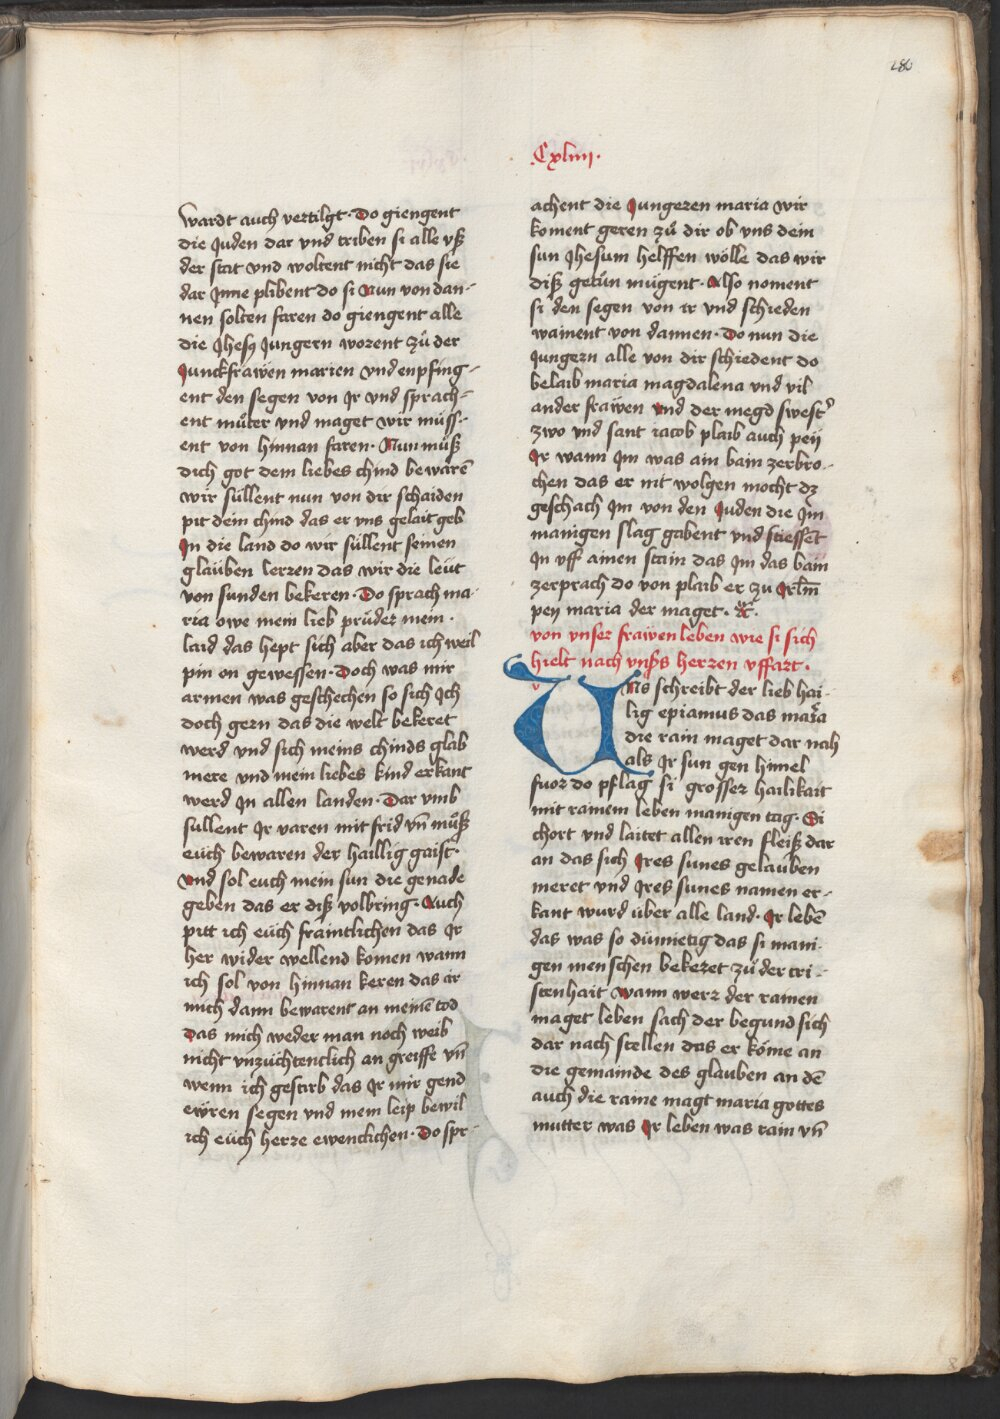 280
Cxliiij.
wardt auch vertilgt. Do giengent
die Juden dar vnd triben si alle vß
der stat vnd woltent nicht das sie
dar Jnne plibent do si Nun von dan-
nen solten faren do giengent alle
die Jhesꝫ Jungern worent zů der
Junckfräwen marien vnd enpfing-
ent den segen von Jr vnd sprach-
ent můter vnd maget wir můss-
ent von hinnan faren. Nun můß
dich got dem liebes chind bewaren̄
wir süllent nun von dir schaiden
pit dein chind das er vns gelait geb
Jn die land do wir süllent seinen
glauben lerren das wir die leüt
von sunden bekeren. Do sprach ma-
ria owe mein lieb prüder mein
laid das hept sich aber das ich weil
pin on gewessen. Doch was mir
armen was geschechen so sich Jch
doch gern das die welt bekeret
werd vnd sich meins chinds glab
mere vnd mein liebes kind erkant
werd Jn allen landen. Dar vmb
süllent Jr varen mit frid vn̄ můß
euch bewaren der haillig gaist.
vnd sol euch mein sun die genade
geben das er diß volbring. Auch
pitt ich euch fraintlichen das Jr
her wider wellend komen wann
ich sol von hinnan keren das ir
mich dann bewarent an meinē tod
Das mich weder man noch weib
nicht vnzüchtentlich an greiffe vn̄
wenn ich gestirb das Jr mir gend
ewren segen vnd mein leip bewil
ich euch herre ewencklichen. Do spr-
achent die Jungeren maria wir
koment geren zů dir ob vns dein
sun Jhesum helffen wölle das wir
diß getůn mügent. Also noment
si den segen von ir vnd schieden
wainent von dannen. Do nun die
Jungern alle von dir schiedent do
belaib maria magdalena vnd vil
ander fräwen vnd der megd swest'
zwo vnd sant iacob plaib auch peÿ
Jr wann Jm was ain bain zerbro-
chen das er nit volgen mocht dꝫ
geschach Jm von den Juden die Jm
manigen slag gabent vnd stiessēt
Jn vff ainen stain das Jm das bain
zerprach do von plaib er zu Jrl̄m
peÿ maria der maget.
von vnser fräwen leben wie si sich
hielt nach vnßs herzen vffart.
Vns schreibt der lieb hai-
lig epiamus das maria
die rain maget dar nah
als Jr sun gen himel
fuor do pflag si grosser hailikait
mit rainem leben manigen tag. Si
chort vnd laitet allen iren fleiß dar
an das sich Jres sunes gelauben
meret vnd Jres sunes namen er-
kant wurd über alle land. Jr lebē
das was so diimietig das si mani-
gen menschen bekeret zů der cri-
stenhait wann werr der rainen
maget leben sach der begund sich
dar nach stellen das er köme an
die gemainde des glauben an dē
auch die raine magt maria gottes
mutter was Jr leben was rain vn̄